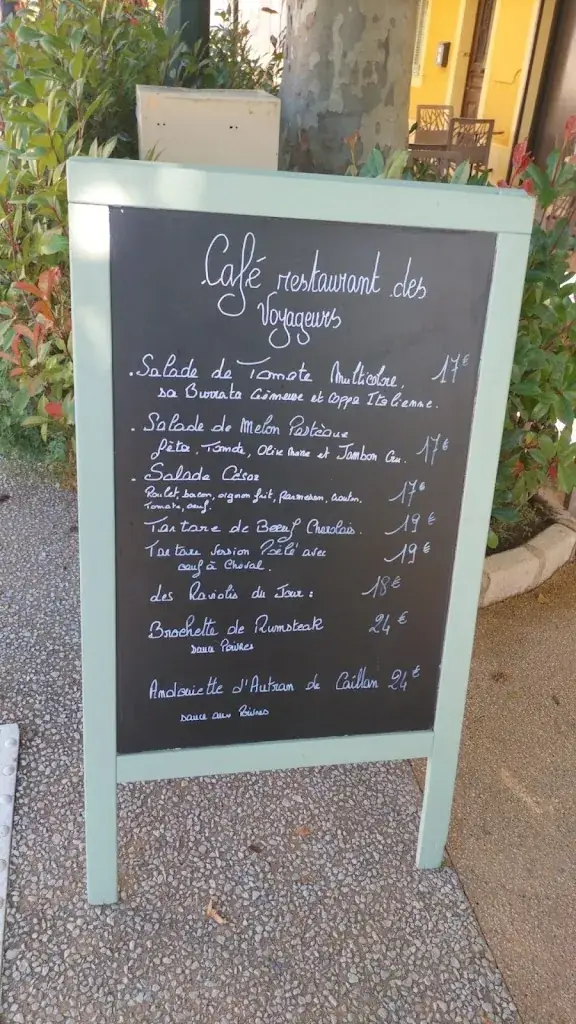 Café restaurant des
Voyageurs
. Salade de Tomate Multicolore, 17€
sa Burrata Crémeuse et Coppa Italienne.
. Salade de Melon Pastèque
féta, Tomate, Olive Noire et Jambon Cru. 17€
. Salade César
Poulet, bacon, oignon frit, Parmesan, crouton, 17€
Tomate, oeuf.
Tartare de Boeuf Charolais. 19€
Tartare Version Poêlé avec 19€
oeuf à Cheval.
des Raviolis du Jour : 18€
Brochette de Rumsteak 24€
sauce Poivres
Andouiette d'Autran de Caillan 24€
sauce aux Poivres